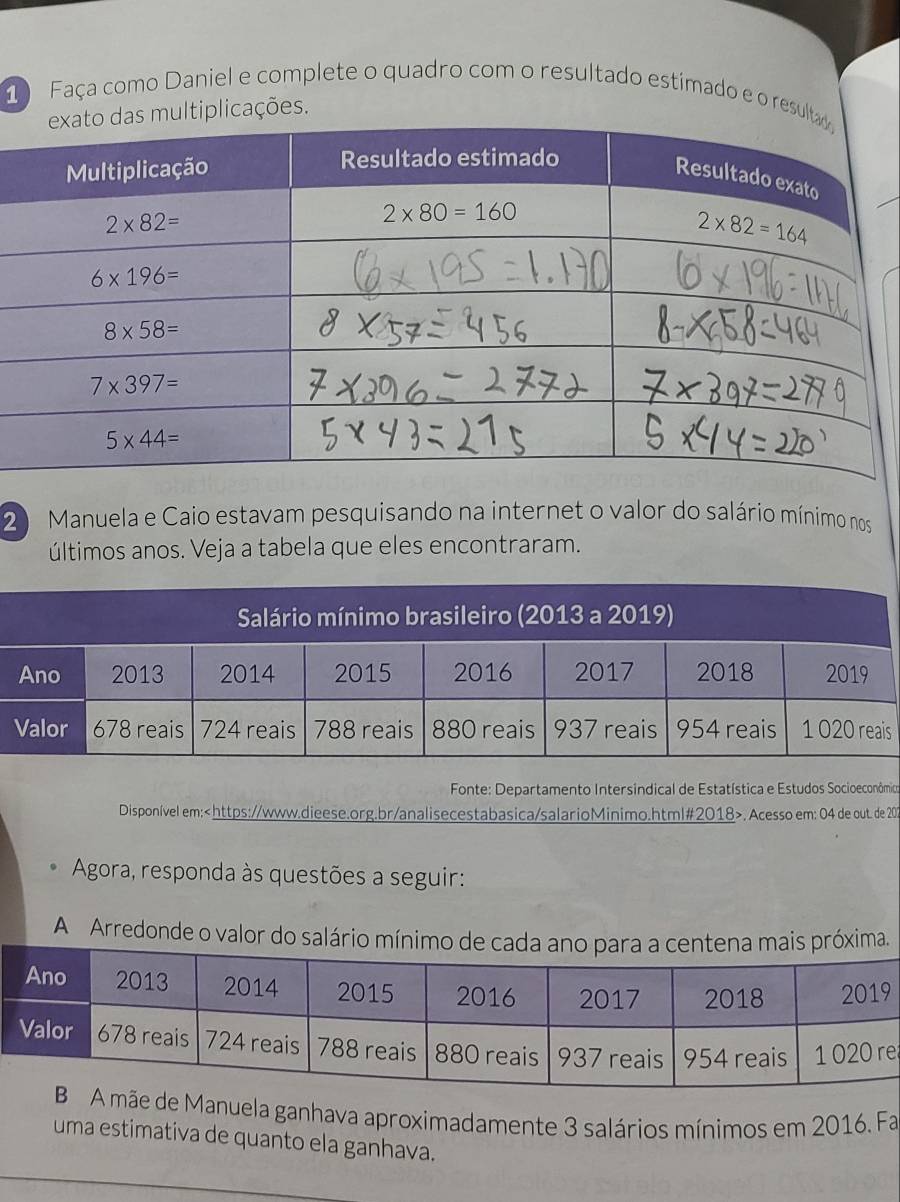 1 Faça como Daniel e complete o quadro com o resultado estimado e o resultado
exato das multiplicações.
Multiplicação Resultado estimado Resultado exato
2 × 82= 2 × 80 = 160 2 × 82 = 164
6 × 196= 6 × 195 = 1.170 6 × 196 = 1176
8 × 58= 8 × 57 = 456 8 × 58 = 464
7 × 397= 7 × 396 = 2772 7 × 397 = 2779
5 × 44= 5 × 43 = 215 5 × 44 = 220
2 Manuela e Caio estavam pesquisando na internet o valor do salário mínimo nos
últimos anos. Veja a tabela que eles encontraram.
Salário mínimo brasileiro (2013 a 2019)
Ano 2013 2014 2015 2016 2017 2018 2019
Valor 678 reais 724 reais 788 reais 880 reais 937 reais 954 reais 1 020 reais
Fonte: Departamento Intersindical de Estatística e Estudos Socioeconômic
Disponível em:<https://www.dieese.org.br/analisecestabasica/salarioMinimo.html#2018>. Acesso em: 04 de out. de 202
• Agora, responda às questões a seguir:
A Arredonde o valor do salário mínimo de cada ano para a centena mais próxima.
Ano 2013 2014 2015 2016 2017 2018 2019
Valor 678 reais 724 reais 788 reais 880 reais 937 reais 954 reais 1 020 re
B A mãe de Manuela ganhava aproximadamente 3 salários mínimos em 2016. Fa
uma estimativa de quanto ela ganhava.